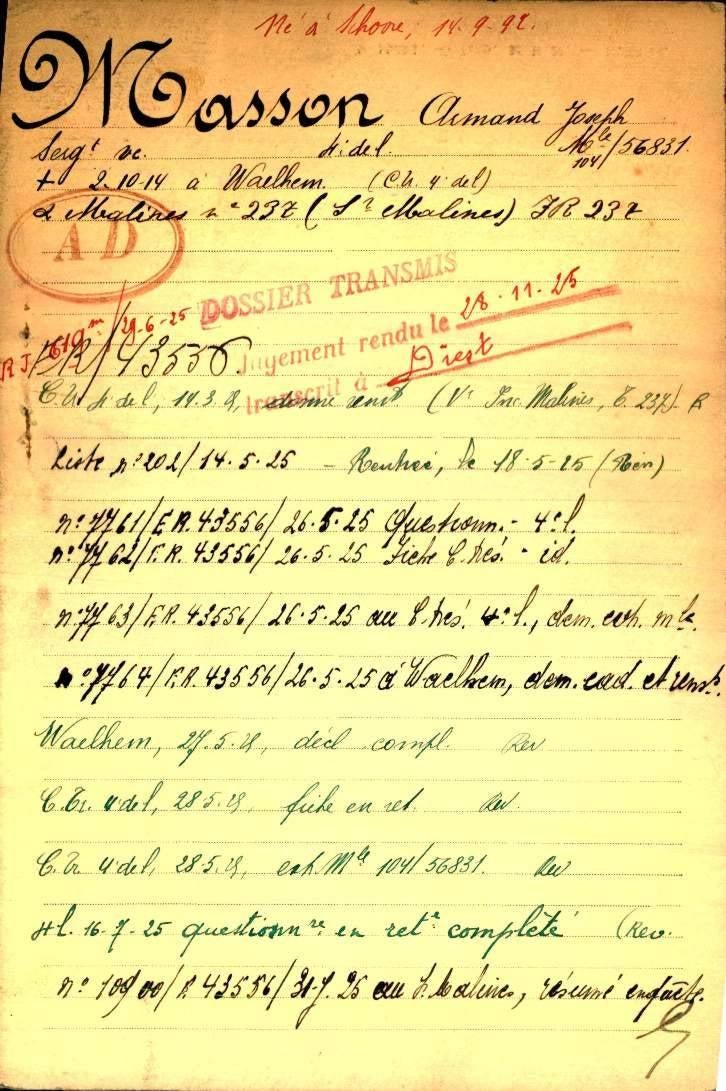 Né à Schoore, 14-9-92.
Masson Armand Joseph
Sergt vc. 4e del. Mle 104/56831
+ 2.10.14 à Waelhem. (Ch. 4e del)
Malines n° 237 (Sr Malines) JR 237
AD
DOSSIER TRANSMIS
RJ 619m/29-6-25
Jugement rendu le 28.11.25
transcrit à Diest
ER/43556.
4e del, 14.3. donne rensts (Vr Inc. Malines, 237)
Liste n° 202/14.5.25 - Rentrée, le 18-5-25 (Rév)
n° 7761/E.R. 43556/26.5.25 Questionn. - 4e l.
n° 7762/E.R. 43556/26.5.25 Fiche C. trés. - id.
n° 7763/E.R. 43556/26.5.25 au C. trés. 4e l., dem. exh. mle.
n° 7764/E.R. 43556/26.5.25 à Waelhem, dem. cad. et rensts.
Waelhem, 27.5. décl compl. Rev
C. Tr. 4e del, 28.5. fiche en ret. Rev.
C. Tr. 4e del, 28.5. exh. Mle 104/56831. Rev
4e l. 16-7-25 questionnre en ret complété (Rev.
n° 10900/R 43556/31-7.25 au Malines, résumé enquête.